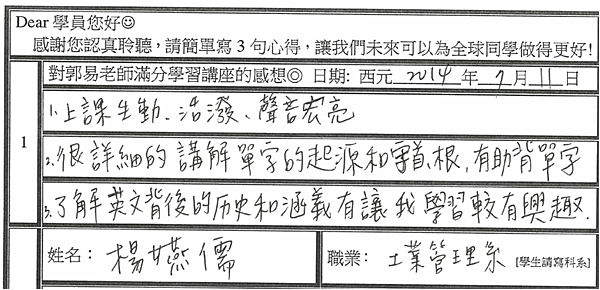 Dear 學員您好☺
感謝您認真聆聽，請簡單寫 3 句心得，讓我們未來可以為全球同學做得更好!
對郭易老師滿分學習講座的感想◎ 日期: 西元 2014 年 7 月 11 日
1
1.上課生動、活潑、聲音宏亮
2.很詳細的講解單字的起源和字首、根,有助背單字
3.了解英文背後的历史和涵義有讓我學習較有興趣.
姓名： 楊燕儒
職業： 工業管理系 [學生請寫科系]